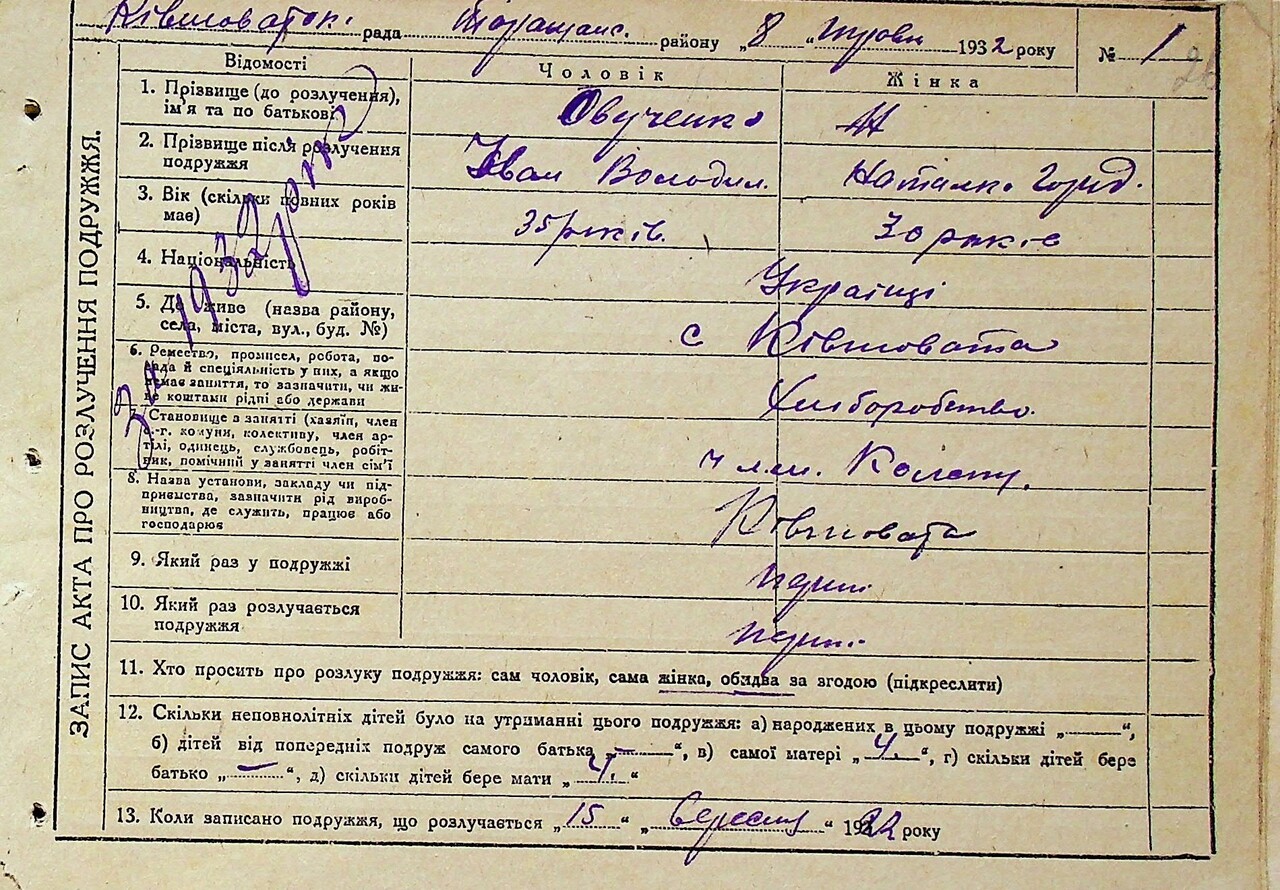 Ківшоватськ. рада Таращанс. району „8 “ травня 1932 року № 1
ЗАПИС АКТА ПРО РОЗЛУЧЕННЯ ПОДРУЖЖЯ.
За 1932 рік
Відомості Чоловік Жінка
1. Прізвище (до розлучення), ім'я та по батькові Овученко
2. Прізвище після розлучення подружжя Іван Володим. Наталка Горд.
3. Вік (скільки повних років має) 35 років. 30 років
4. Національність Українці
5. Де живе (назва району, села, міста, вул., буд. №) с Ківшовата
6. Ремество, промисел, робота, по-
сада й спеціяльність у них, а якщо
немає заняття, то зазначити, чи жи-
ве коштами рідні або держави Хліборобство.
7. Становище в занятті (хазяїн, член
с.-г. комуни, колективу, член ар-
тілі, одинець, службовець, робіт-
ник, помічний у занятті член сім'ї член. Колект.
8. Назва установи, закладу чи під-
приємства, зазначити рід вироб-
ництва, де служить, працює або
господарює Ківшовата
9. Який раз у подружжі перши
10. Який раз розлучається подружжя перши.
11. Хто просить про розлуку подружжя: сам чоловік, сама жінка, обидва за згодою (підкреслити)
12. Скільки неповнолітніх дітей було на утриманні цього подружжя: а) народжених в цьому подружжі „ “,
б) дітей від попередніх подруж самого батька „ — “, в) самої матері „ 4 “, г) скільки дітей бере
батько „ — “, д) скільки дітей бере мати „ 4. “
13. Коли записано подружжя, що розлучається „ 15 “ „ вересня “ 1922 року